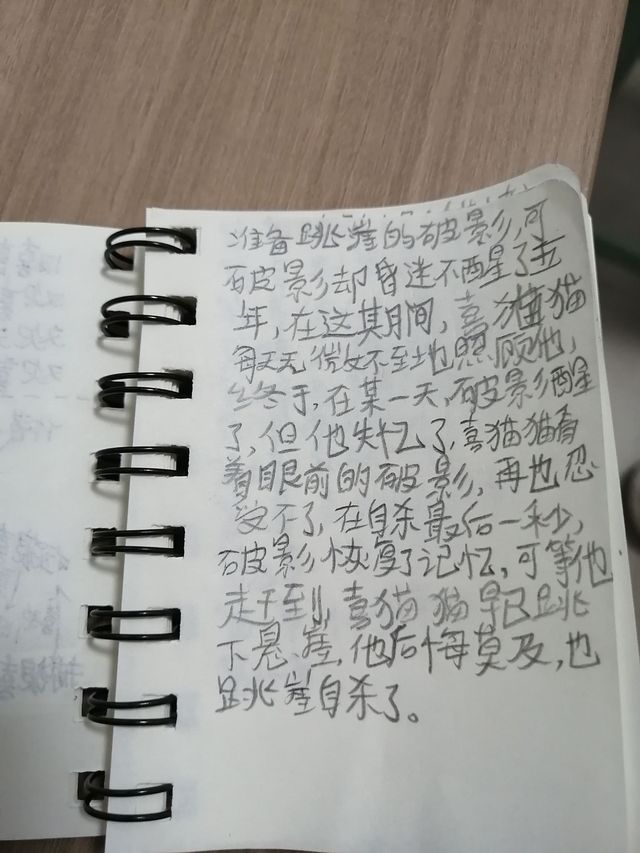 准备跳崖的破影,可
破影却昏迷不醒了五
年,在这其月间,喜猫猫
每天无微不至地照顾他,
终于,在某一天,破影醒
了,但他失忆了,喜猫猫看
着眼前的破影,再也忍
受不了,在自杀最后一秒,
破影恢复了记忆,可等他
走干到,喜猫猫早已跳
下悬崖,他后悔莫及,也
跳崖自杀了。